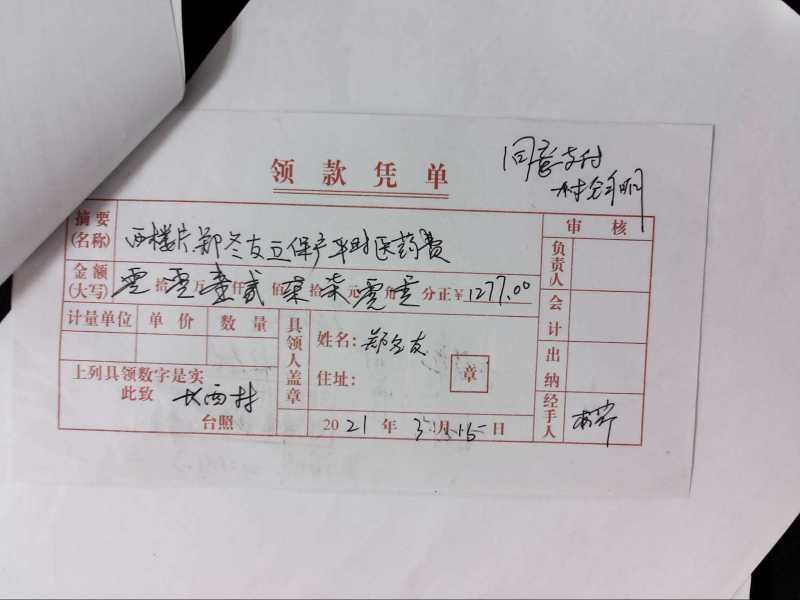 领款凭单
同意支付
摘要
(名称)
西楼片郑冬友五保户平时医药费
金额
(大写)
零拾零万壹仟贰佰柒拾柒元零角零分正¥1277.00
计量单位 单价 数量
上列具领数字是实
此致 长西村
台照
具领人盖章
姓名:郑冬友
住址: 章
2021年3月15日
审核
负责人
会计
出纳
经手人